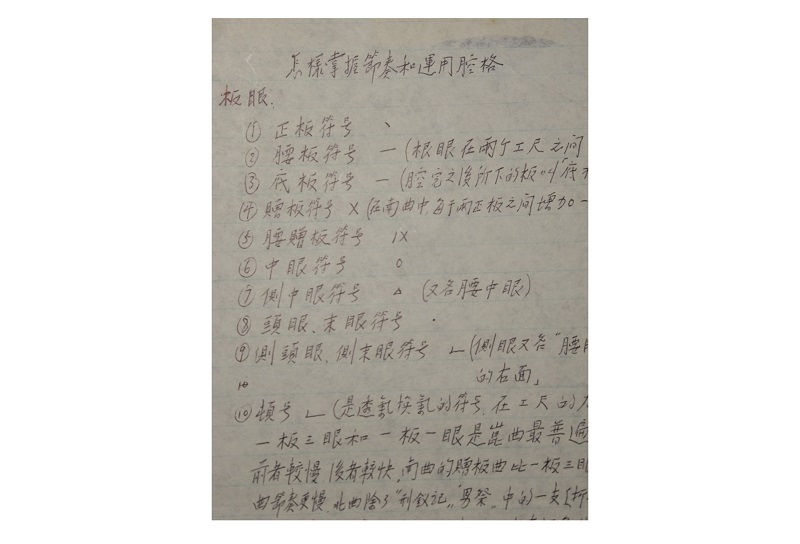 怎樣掌握節奏和運用腔格
板眼:
① 正板符号 、
② 腰板符号 — (板眼在兩个工尺之间
③ 底板符号 — (腔完之後所下的板叫"底
④ 贈板符号 X (在南曲中,每于兩正板之间增加一
⑤ 腰贈板符号 IX
⑥ 中眼符号 O
⑦ 側中眼符号 △ (又名腰中眼)
⑧ 頭眼、末眼符号 ·
⑨ 側頭眼、側末眼符号 ㄴ (側眼又名"腰眼
的右面」
⑩ 頓号 ㄴ (是透氣换氣的符号,在工尺的
一板三眼和一板一眼是崑曲最普遍
前者較慢後者較快,南曲的贈板曲比一板三眼
曲節奏更慢,北曲除了"刑叙记""男祭"中的一支〔折